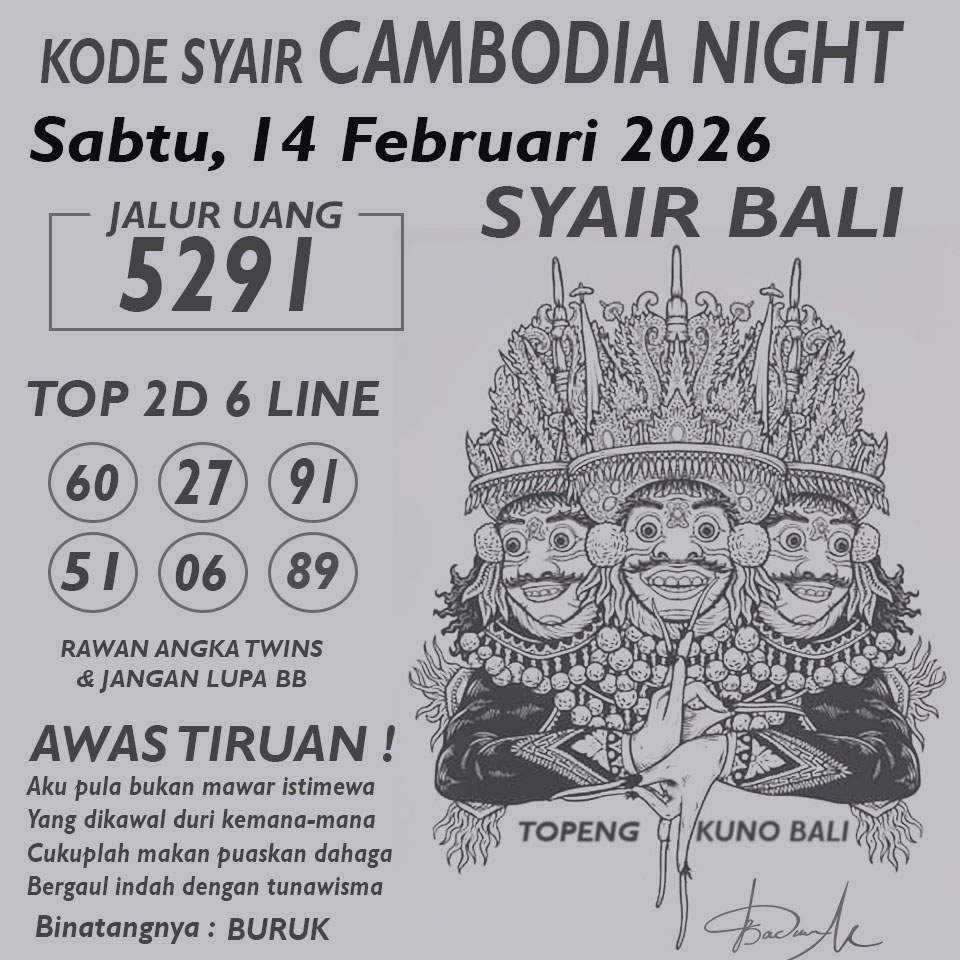 KODE SYAIR CAMBODIA NIGHT
Sabtu, 14 Februari 2026
SYAIR BALI
JALUR UANG
5291
TOP 2D 6 LINE
60 27 91
51 06 89
RAWAN ANGKA TWINS
& JANGAN LUPA BB
AWAS TIRUAN !
Aku pula bukan mawar istimewa
Yang dikawal duri kemana-mana
Cukuplah makan puaskan dahaga
Bergaul indah dengan tunawisma
Binatangnya : BURUK
TOPENG KUNO BALI